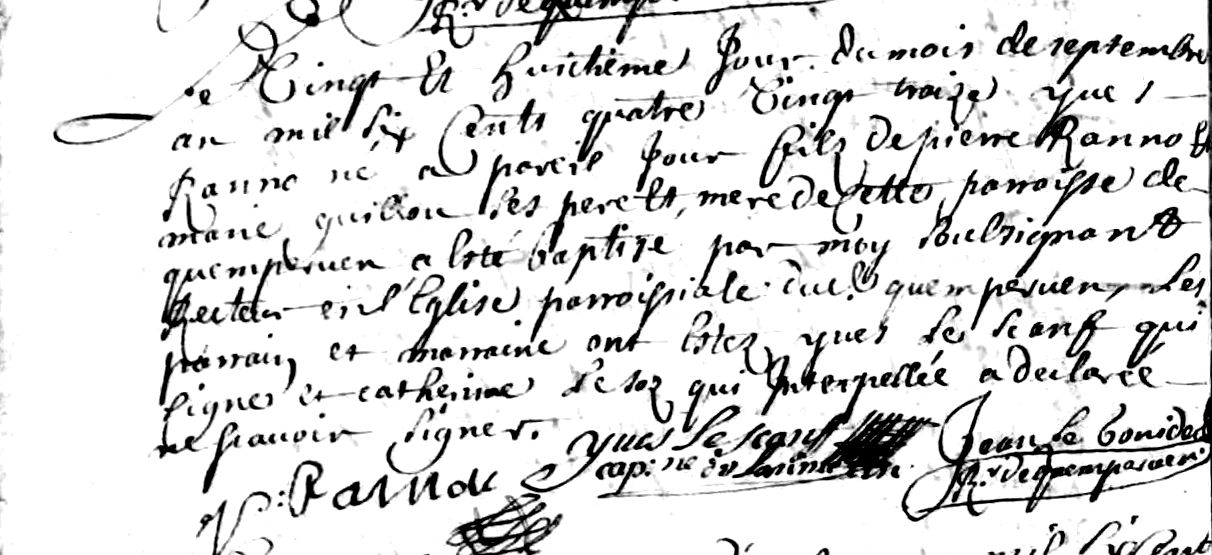 R.r de quemp
Le Vingt et huictieme Jour du mois de septembre
an mil six Cents quatre Vingt traize yues
Ranno né a pareil Jour fils de pierre Ranno et
marie quillou ses pere et mere de Cette parroisse de
quemperuen a esté baptisé par moy soubsignant
Recteur en l'Eglise parroissiale dud. quemperuen, Les
parrain et marraine ont estez yues le scanf qui
signe et catherine le saz qui Interpellée a declarée
ne scauoir signer.
yues le scanf
Jean le Gonidec
cap:ne
R.r de quemperuen
P: Rannou
mil six